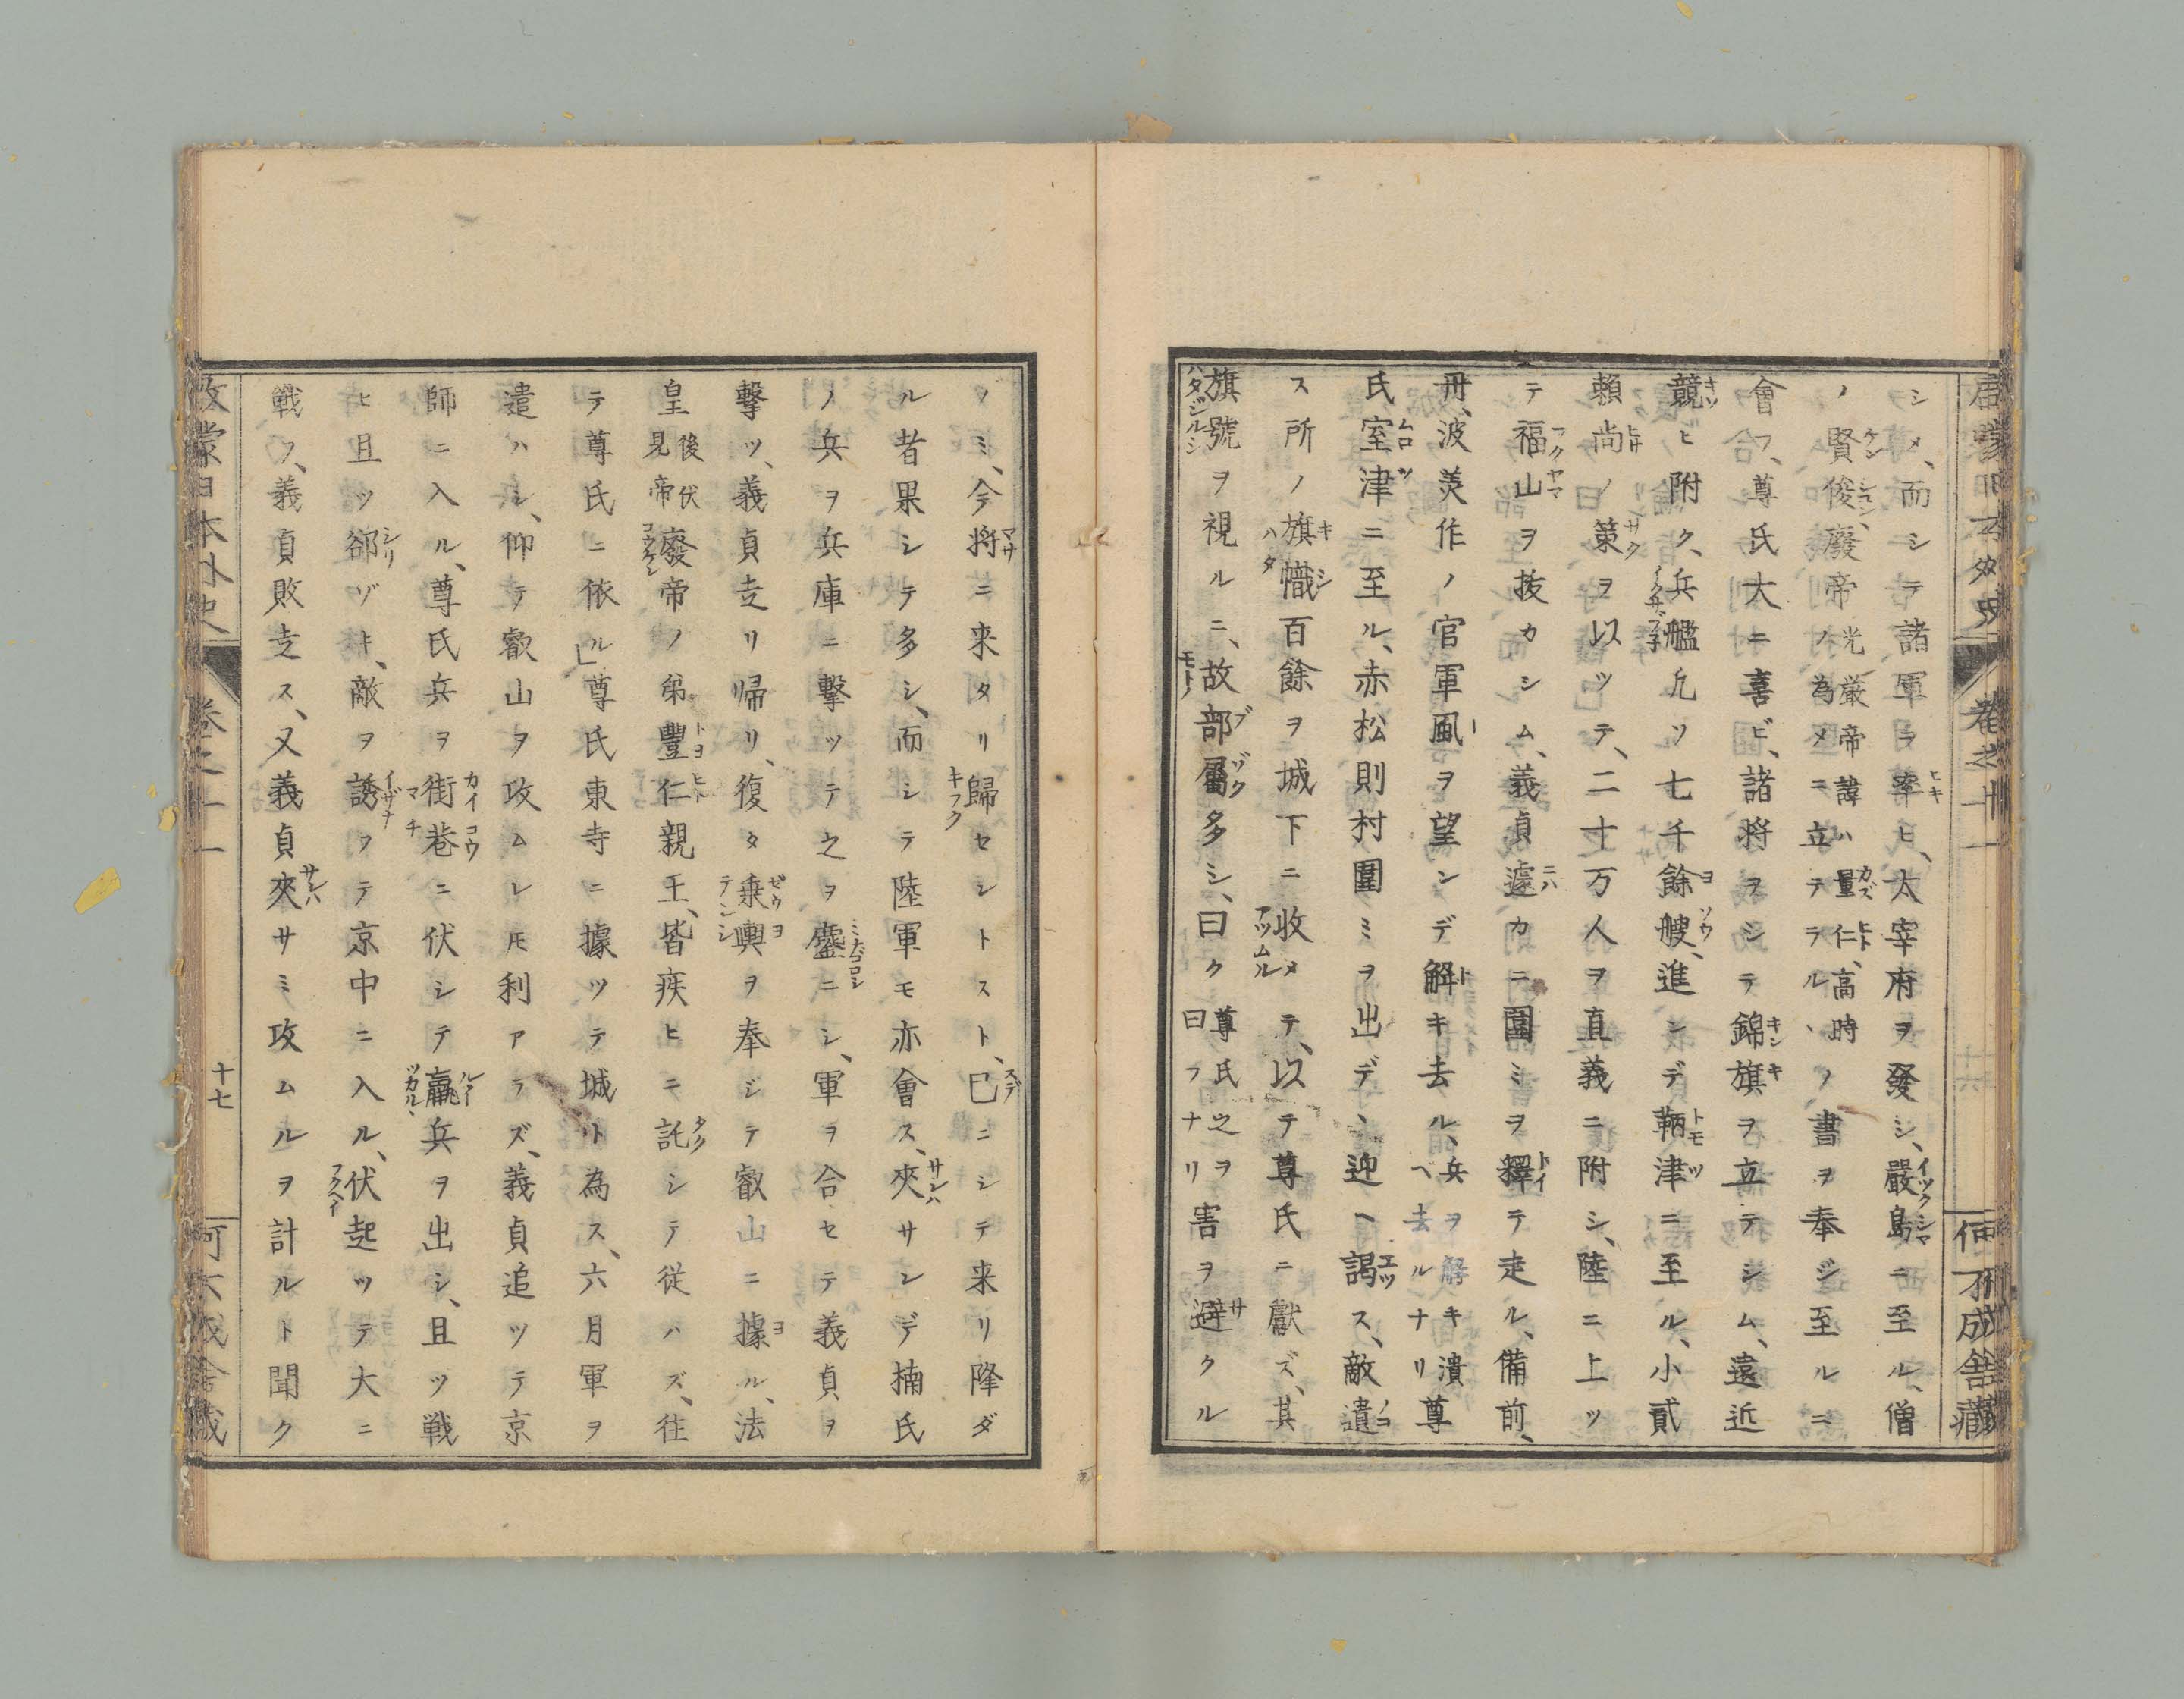 シメ、而シテ諸軍ヲ率ヒ、太宰府ヲ發シ、嚴島ニ至ル、僧
ノ賢俊、廢帝光嚴帝諱ハ量仁、高時ノ為メニ立テラル、ノ書ヲ奉ジ至ルニ
會フ、尊氏大ニ喜ビ、諸将ヲシテ錦旗ヲ立テシム、遠近
競ヒ附ク、兵艦凢ソ七千餘艘、進ンデ鞆津ニ至ル、小貳
頼尚ノ策ヲ以ツテ、二十万人ヲ直義ニ附シ、陸ニ上ツ
テ福山ヲ抜カシム、義貞遽カニ圍ミヲ釋テ走ル、備前、
丹、波美作ノ官軍風ヲ望ンデ解キ去ル、兵ヲ解キ潰ベ去ルナリ尊
氏室津ニ至ル、赤松則村圍ミヲ出デ、迎ヘ謁ス、敵遺
ス所ノ旗幟百餘ヲ城下ニ收メテ、以テ尊氏ニ獻ズ、其
旗號ヲ視ルニ、故部屬多シ、曰ク尊氏之ヲ曰フナリ害ヲ避クル
ノミ、今将ニ来タリ歸セントスト、已ニシテ来リ降ダ
ル者果シテ多シ、而シテ陸軍モ亦會ス、夾サンデ楠氏
ノ兵ヲ兵庫ニ撃ツテ之ヲ鏖ニシ、軍ヲ合セテ義貞ヲ
撃ツ、義貞走リ帰リ、復タ乗輿ヲ奉ジテ叡山ニ據ル、法
皇後伏見帝廢帝ノ弟豐仁親王、皆疾ヒニ託シテ従ハズ、往
テ尊氏ニ依ル」尊氏東寺ニ據ツテ城ト為ス、六月軍ヲ
遣ハシ、仰テ叡山ヲ攻ムレ𪜈利アラズ、義貞追ツテ京
師ニ入ル、尊氏兵ヲ街巷ニ伏シテ羸兵ヲ出シ、且ツ戦
ヒ且ツ郤ゾキ、敵ヲ誘フテ京中ニ入ル、伏起ツテ大ニ
戦フ、義貞敗走ス、又義貞夾サミ攻ムルヲ計ルト聞ク
啓蒙日本外史
卷之十一
十七